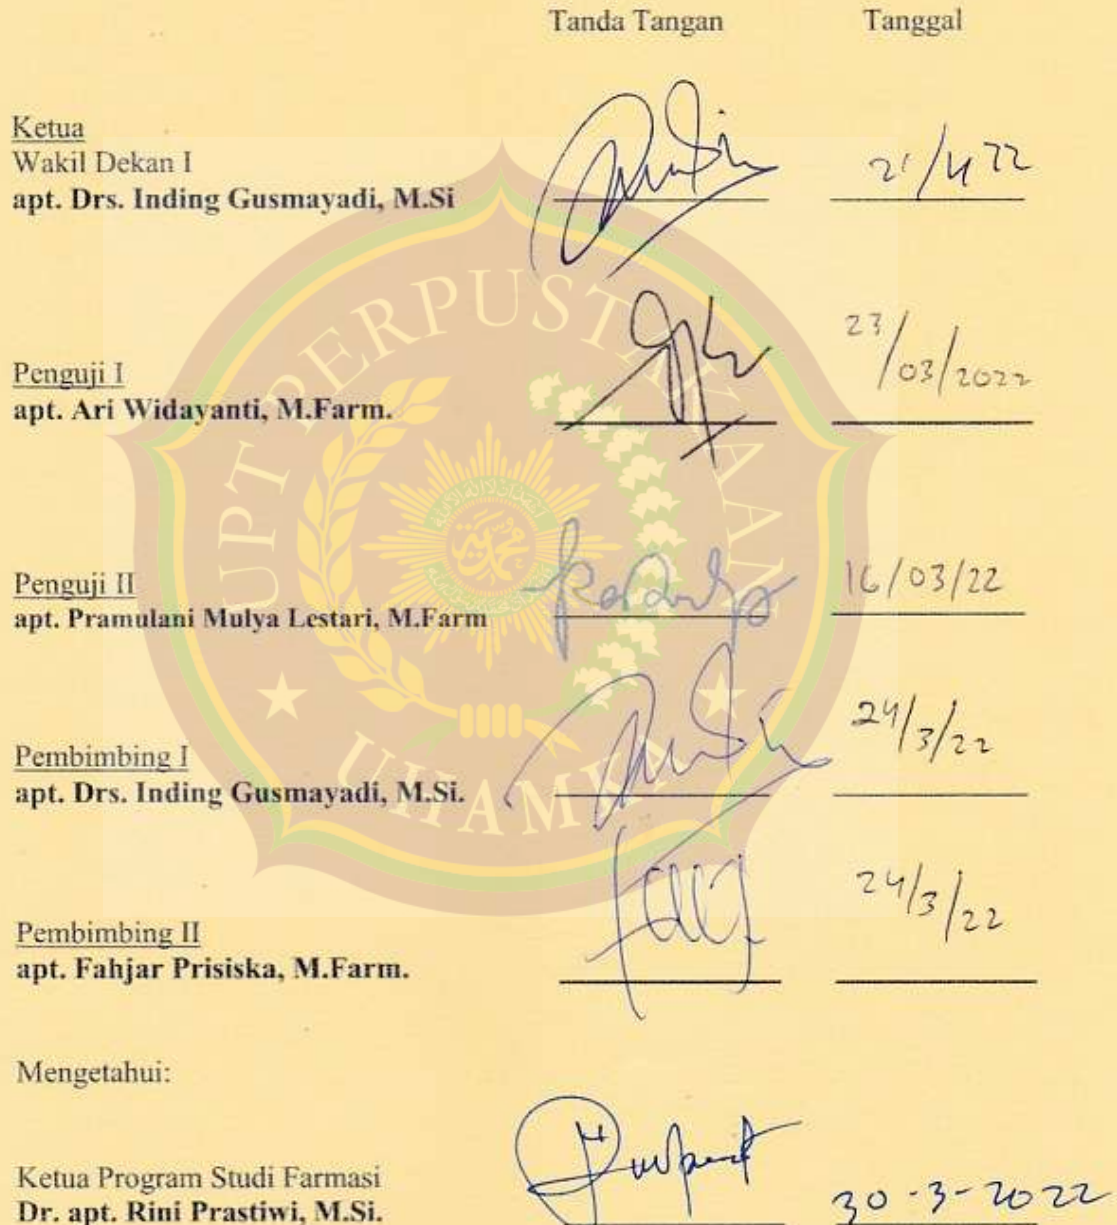 Tanda Tangan Tanggal
Ketua
Wakil Dekan I
apt. Drs. Inding Gusmayadi, M.Si
21/4 22
Penguji I
apt. Ari Widayanti, M.Farm.
23/03/2022
Penguji II
apt. Pramulani Mulya Lestari, M.Farm
16/03/22
Pembimbing I
apt. Drs. Inding Gusmayadi, M.Si.
24/3/22
Pembimbing II
apt. Fahjar Prisiska, M.Farm.
24/3/22
Mengetahui:
Ketua Program Studi Farmasi
Dr. apt. Rini Prastiwi, M.Si.
30-3-2022
UPT PERPUSTAKAAN
UHAMKA